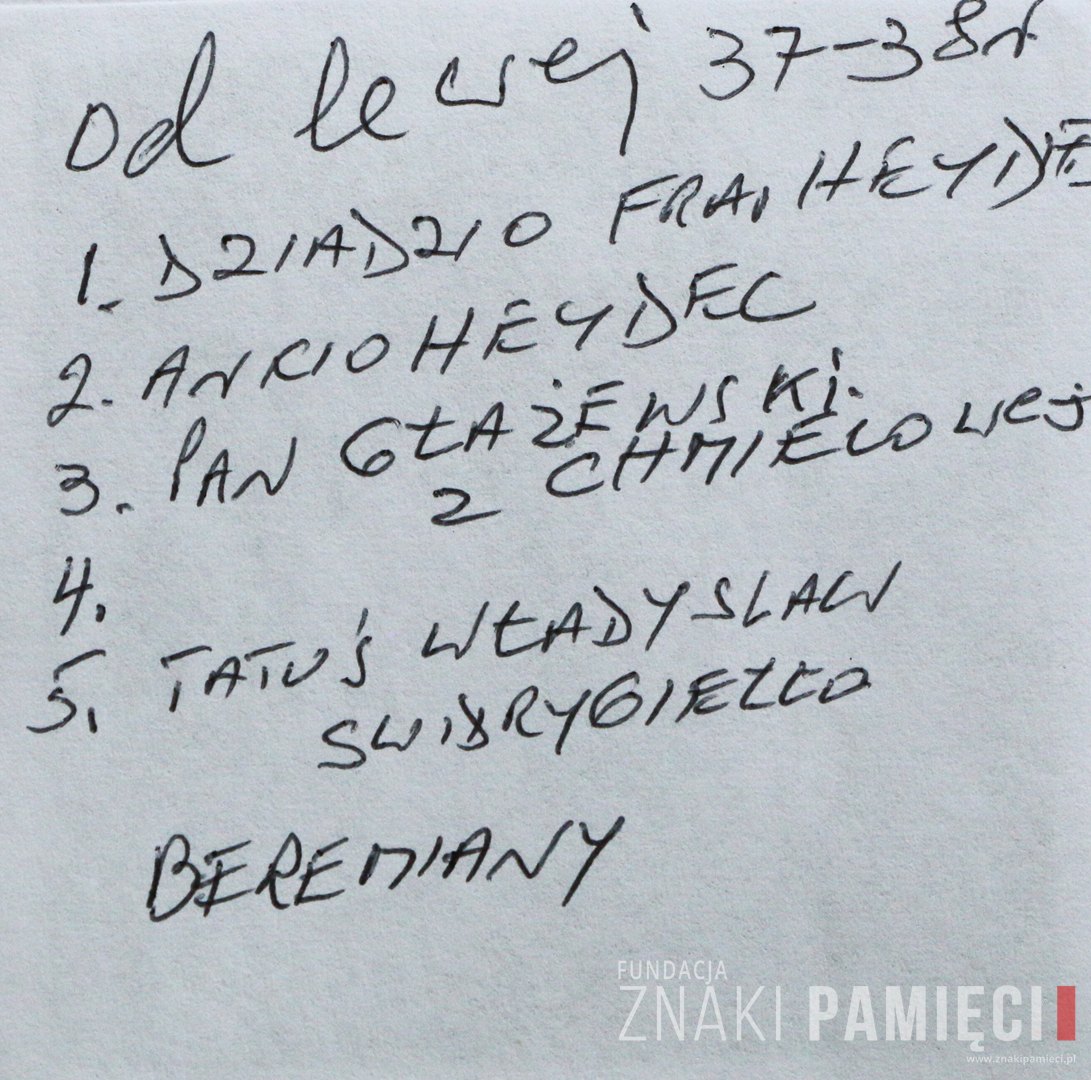 od lewej 37-38r
1. DZIADZIO FRA. HEYDE
2. ANKIO HEYDEC
3. PAN GŁAŻEWSKI.
Z CHMIELOWEJ
4.
5. TATUŚ WŁADYSLAW
SWIDRYGIEŁŁO
BEREMIANY
FUNDACJA
ZNAKI PAMIĘCI
www.znakipamieci.pl